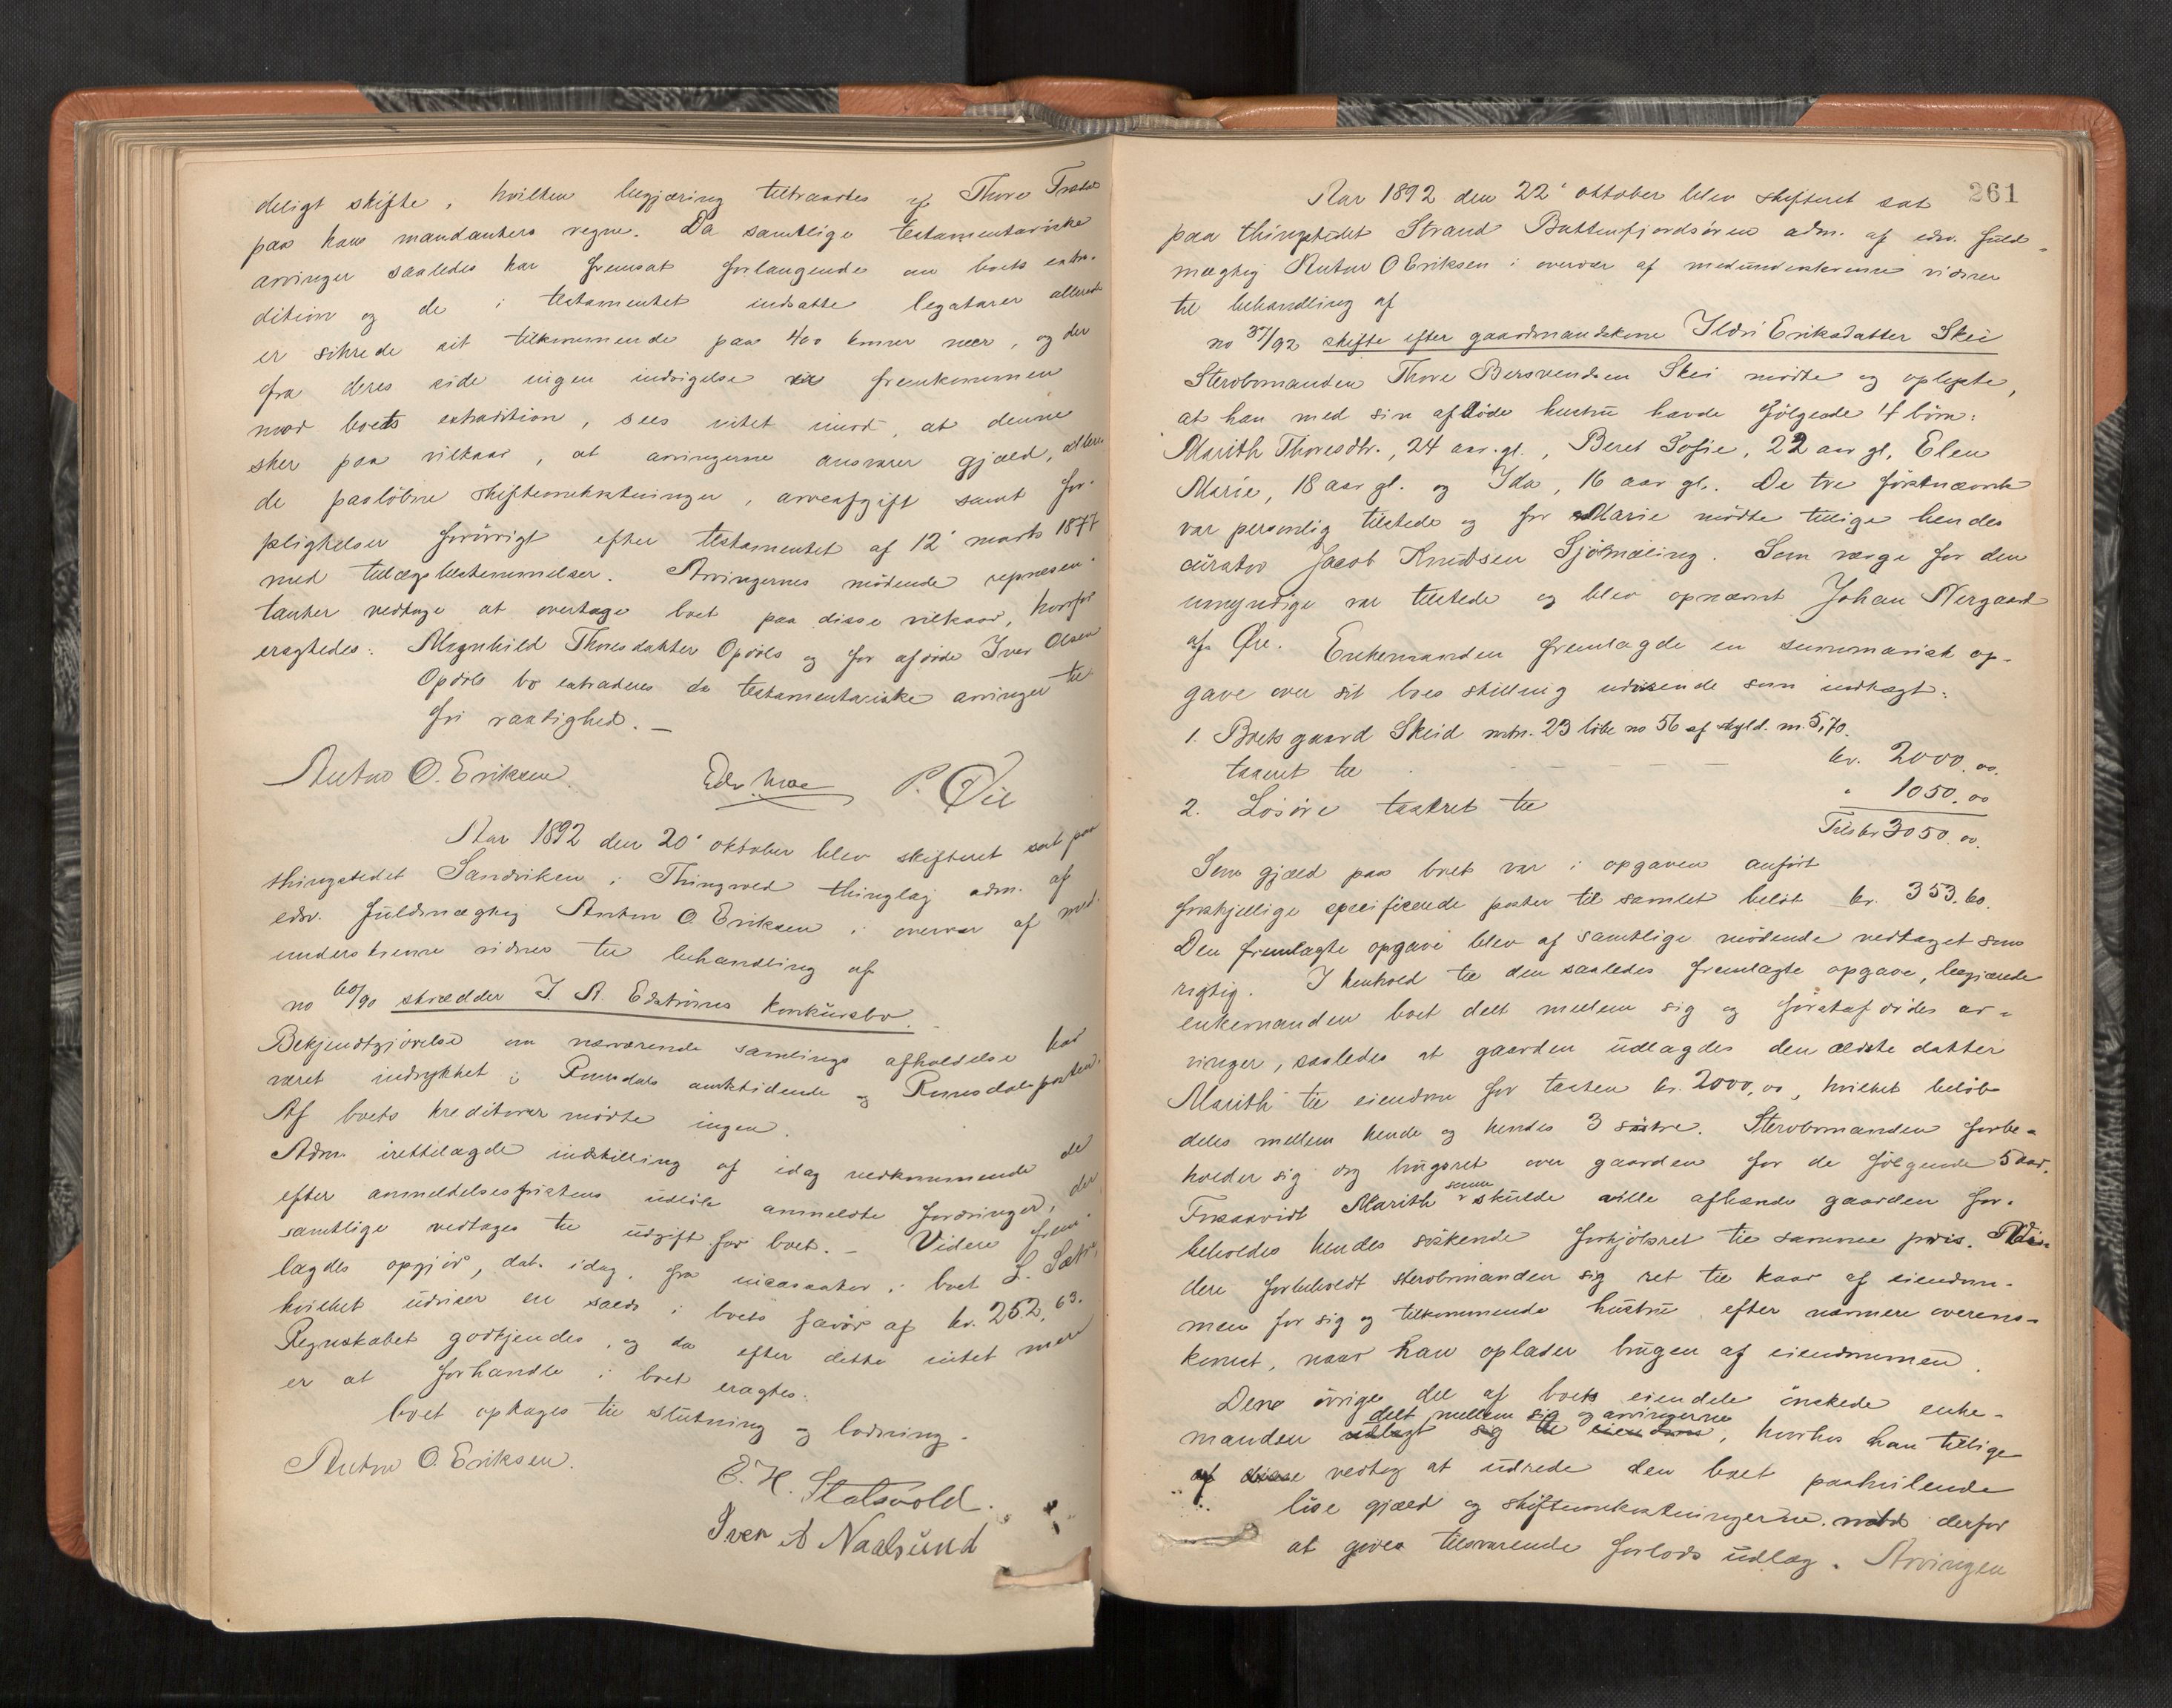 deligt skifte, hvilken begjæring tiltraadtes af Thore
paa hans mandanters vegne. Da samtlige testamentariske
arvinger saaledes har fremsat forlangende om boets extra-
dition og de i testamentet indsatte legatarer allerede
er sikrede sit tilkommende paa 400 kroner nær, og der
fra deres side ingen indsigelse er fremkommen
mod boets extradition, sees intet imod, at denne
sker paa vilkaar, at arvingerne ansvarer gjæld, allere
de paaløbne skifteomkostninger, arveafgift samt for-
pligtelser forøvrigt efter testamentet af 12' marts 1877
med tillægsbestemmelser. Arvingernes mødende repræsen-
tanter vedtoge at overtage boet paa disse vilkaar, hvorfor
eragtedes: Magnhild Thoresdatter Opdøls og for afdøde Iver Olsen
Opdøls bo extraderes de testamentariske arvinger til
fri raadighed. —
Anton O. Eriksen. Edv Moe P. Øie
Aar 1892 den 20' oktober blev skifteret sat paa
thingstedet Sandviken i Thingvold thinglag adm. af
edsv. fuldmægtig Anton O. Eriksen i overvær af med-
underskrevne vidner til behandling af
no 60/90 skrædder J. A. Edstrøms konkursbo. -
Bekjendtgjørelse om nærværende samlings afholdelse har
været indrykket i Romsdals amtstidende og Romsdalsposten.
Af boets kreditorer mødte ingen.
Adm. irettelagde indstilling af idag vedkommende de
efter anmeldelsesfristens udløb anmeldte fordringer, der
samtlige vedtages til udgift for boet. - Videre frem-
lagdes opgjør, dat. idag, fra incassator i boet L. Sæther,
hvilket udviser en saldo i boets favør af kr. 252,63.
Regnskabet godkjendes, og da efter dette intet mere
er at forhandle i boet eragtes:
boet optages til slutning og lodning.
Anton O. Eriksen.
E. H. Stolsvold.
Iver A Naalsund
261
Aar 1892 den 22' oktober blev skifteret sat
paa thingstedet Strand Battenfjordsøren adm. af edsv. fuld-
mægtig Anton O Eriksen i overvær af medunderskrevne vidner
til behandling af
no 37/92 skifte efter gaardmandskone Ildri Eriksdatter Skei
Stervbomanden Thore Bersvendsen Skei mødte og oplyste,
at han med sin afdøde hustru havde følgende 4 børn:
Marith Thoresdtr., 24 aar. gl., Beret Sofie, 22 aar gl, Elen
Marie, 18 aar gl. og Ida, 16 aar gl. De tre førstnævnte
var personlig tilstede og for Marie mødte tillige hendes
curator Jacob Knudsen Sjølmæling. Som værge for den
umyndige var tilstede og blev opnævnt Johan Nergaard
af Øre. Enkemanden fremlagde en summarisk op-
gave over sit boes stilling udvisende som indtægt:
1. Boets gaard Skeid mtn. 23 løbe no 56 af skyld. m. 5,70.
taxeret til kr. 2000.00.
2. Løsøre taxeret til " 1050.00
Tils kr 3050.00.
Som gjæld paa boet var i opgaven anført
forskjellige specificerede poster til samlet beløb kr. 353.60.
Den fremlagte opgave blev af samtlige mødende vedtaget som
rigtig. I henhold til den saaledes fremlagte opgave, begjærede
enkemanden boet delt mellem sig og førstafdødes ar-
vinger, saaledes at gaarden udlagdes den ældste datter
Marith til eiendom for taxten kr. 2000,00, hvilket beløb
deles mellem hende og hendes 3 søstre. Stervbomanden forbe-
holder sig dog brugsret over gaarden for de følgende 5 aar.
Forsaavidt Marith senere skulde ville afhænde gaarden for-
beholdes hendes søskende forkjøbsret til samme pris. Vi-
dere forbeholdt stervbomanden sig ret til kaar af eiendom-
men for sig og tilkommende hustru efter nærmere overens-
komst, naar han oplader brugen af eiendommen.
Den øvrige del af boets eiendele ønskede enke-
delt mellem sig og arvingerne
manden udlagt sig til eiendom, hvorhos han tillige
af disse vedtog at udrede den boet paahvilende
løse gjæld og skifteomkostningerne mod derfor
at gives tilsvarende forlods udlæg. Arvingen